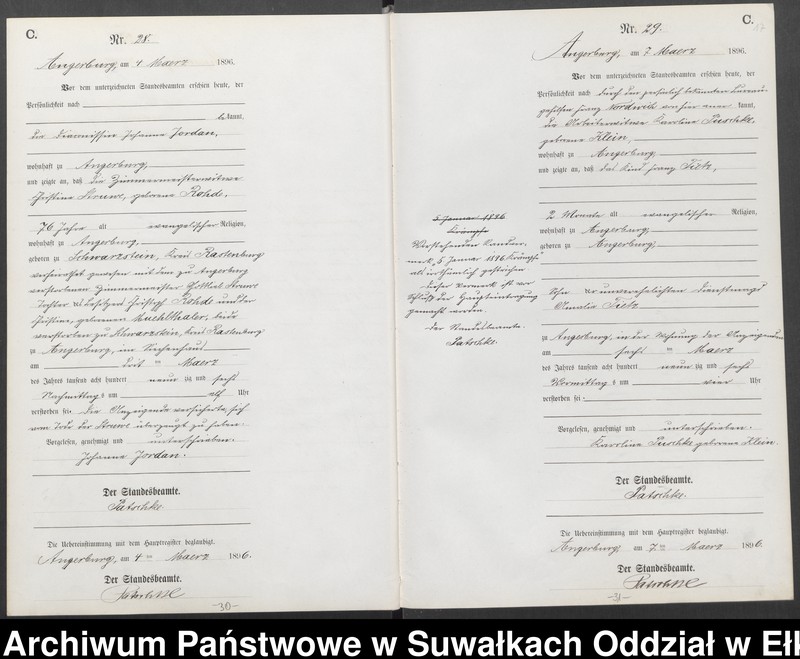 C.
Nr. 28.
Angerburg, am 4 Maerz 1896.
Vor dem unterzeichneten Standesbeamten erschien heute, der
Persönlichkeit nach
bekannt,
die Diaconissin Johanna Jordan,
wohnhaft zu Angerburg,
und zeigte an, daß die Zimmermeisterwittwe
Christine Struwe, geborene Rohde,
76 Jahre alt evangelischer Religion,
wohnhaft zu Angerburg,
geboren zu Schwarzstein, Kreis Rastenburg
verheirathet gewesen mit dem zu Angerburg
verstorbenen Zimmermeister Gottlieb Struwe
Tochter des Besitzers Christoph Rohde und der
Christine, geborenen Muehlthaler, beide
verstorben zu Schwarzstein, Kreis Rastenburg
zu Angerburg, im Siechenhaus
am drit ten Maerz
des Jahres tausend acht hundert neun zig und sechs
Nachmittags um elf Uhr
verstorben sei. Die Anzeigende versicherte, sich
vom Tode der Struwe überzeugt zu haben.
Vorgelesen, genehmigt und unterschrieben.
Johanna Jordan.
Der Standesbeamte.
Patschke.
Die Uebereinstimmung mit dem Hauptregister beglaubigt.
Angerburg, am 4 ten Maerz 1896.
Der Standesbeamte.
Patschke
-30-
C.
Nr. 29.
Angerburg, am 7 Maerz 1896.
Vor dem unterzeichneten Standesbeamten erschien heute, der
Persönlichkeit nach durch den persönlich bekannten Bureau
gehilfen Franz aner kannt,
die Arbeiterwittwe Karoline Puschke,
geborene Klein,
wohnhaft zu Angerburg,
und zeigte an, daß das Kind Franz Tietz,
2 Monate alt evangelischer Religion,
wohnhaft zu Angerburg,
geboren zu Angerburg,
Sohn der unverehelichten Dienstmagd
Amalie Tietz
zu Angerburg, in der Wohnung der Anzeigenden
am sechs ten Maerz
des Jahres tausend acht hundert neun zig und sechs
Vormittags um vier Uhr
verstorben sei.
Vorgelesen, genehmigt und unterschrieben.
Karoline Puschke geborene Klein
Der Standesbeamte.
Patschke.
Die Uebereinstimmung mit dem Hauptregister beglaubigt.
Angerburg, am 7 ten Maerz 1896.
Der Standesbeamte.
Patschke
-31-
5 Januar 1896
Krämpfe
Vorstehender Rander
merk "5 Januar 1896 Krämpfe"
als irrthümlich gestrichen
dieser Vermerk ist vor
Schluß der Haupteintragung
gemacht worden.
Der Standesbeamte.
Patschke.
Archiwum Państwowe w Suwałkach Oddział w Ełk